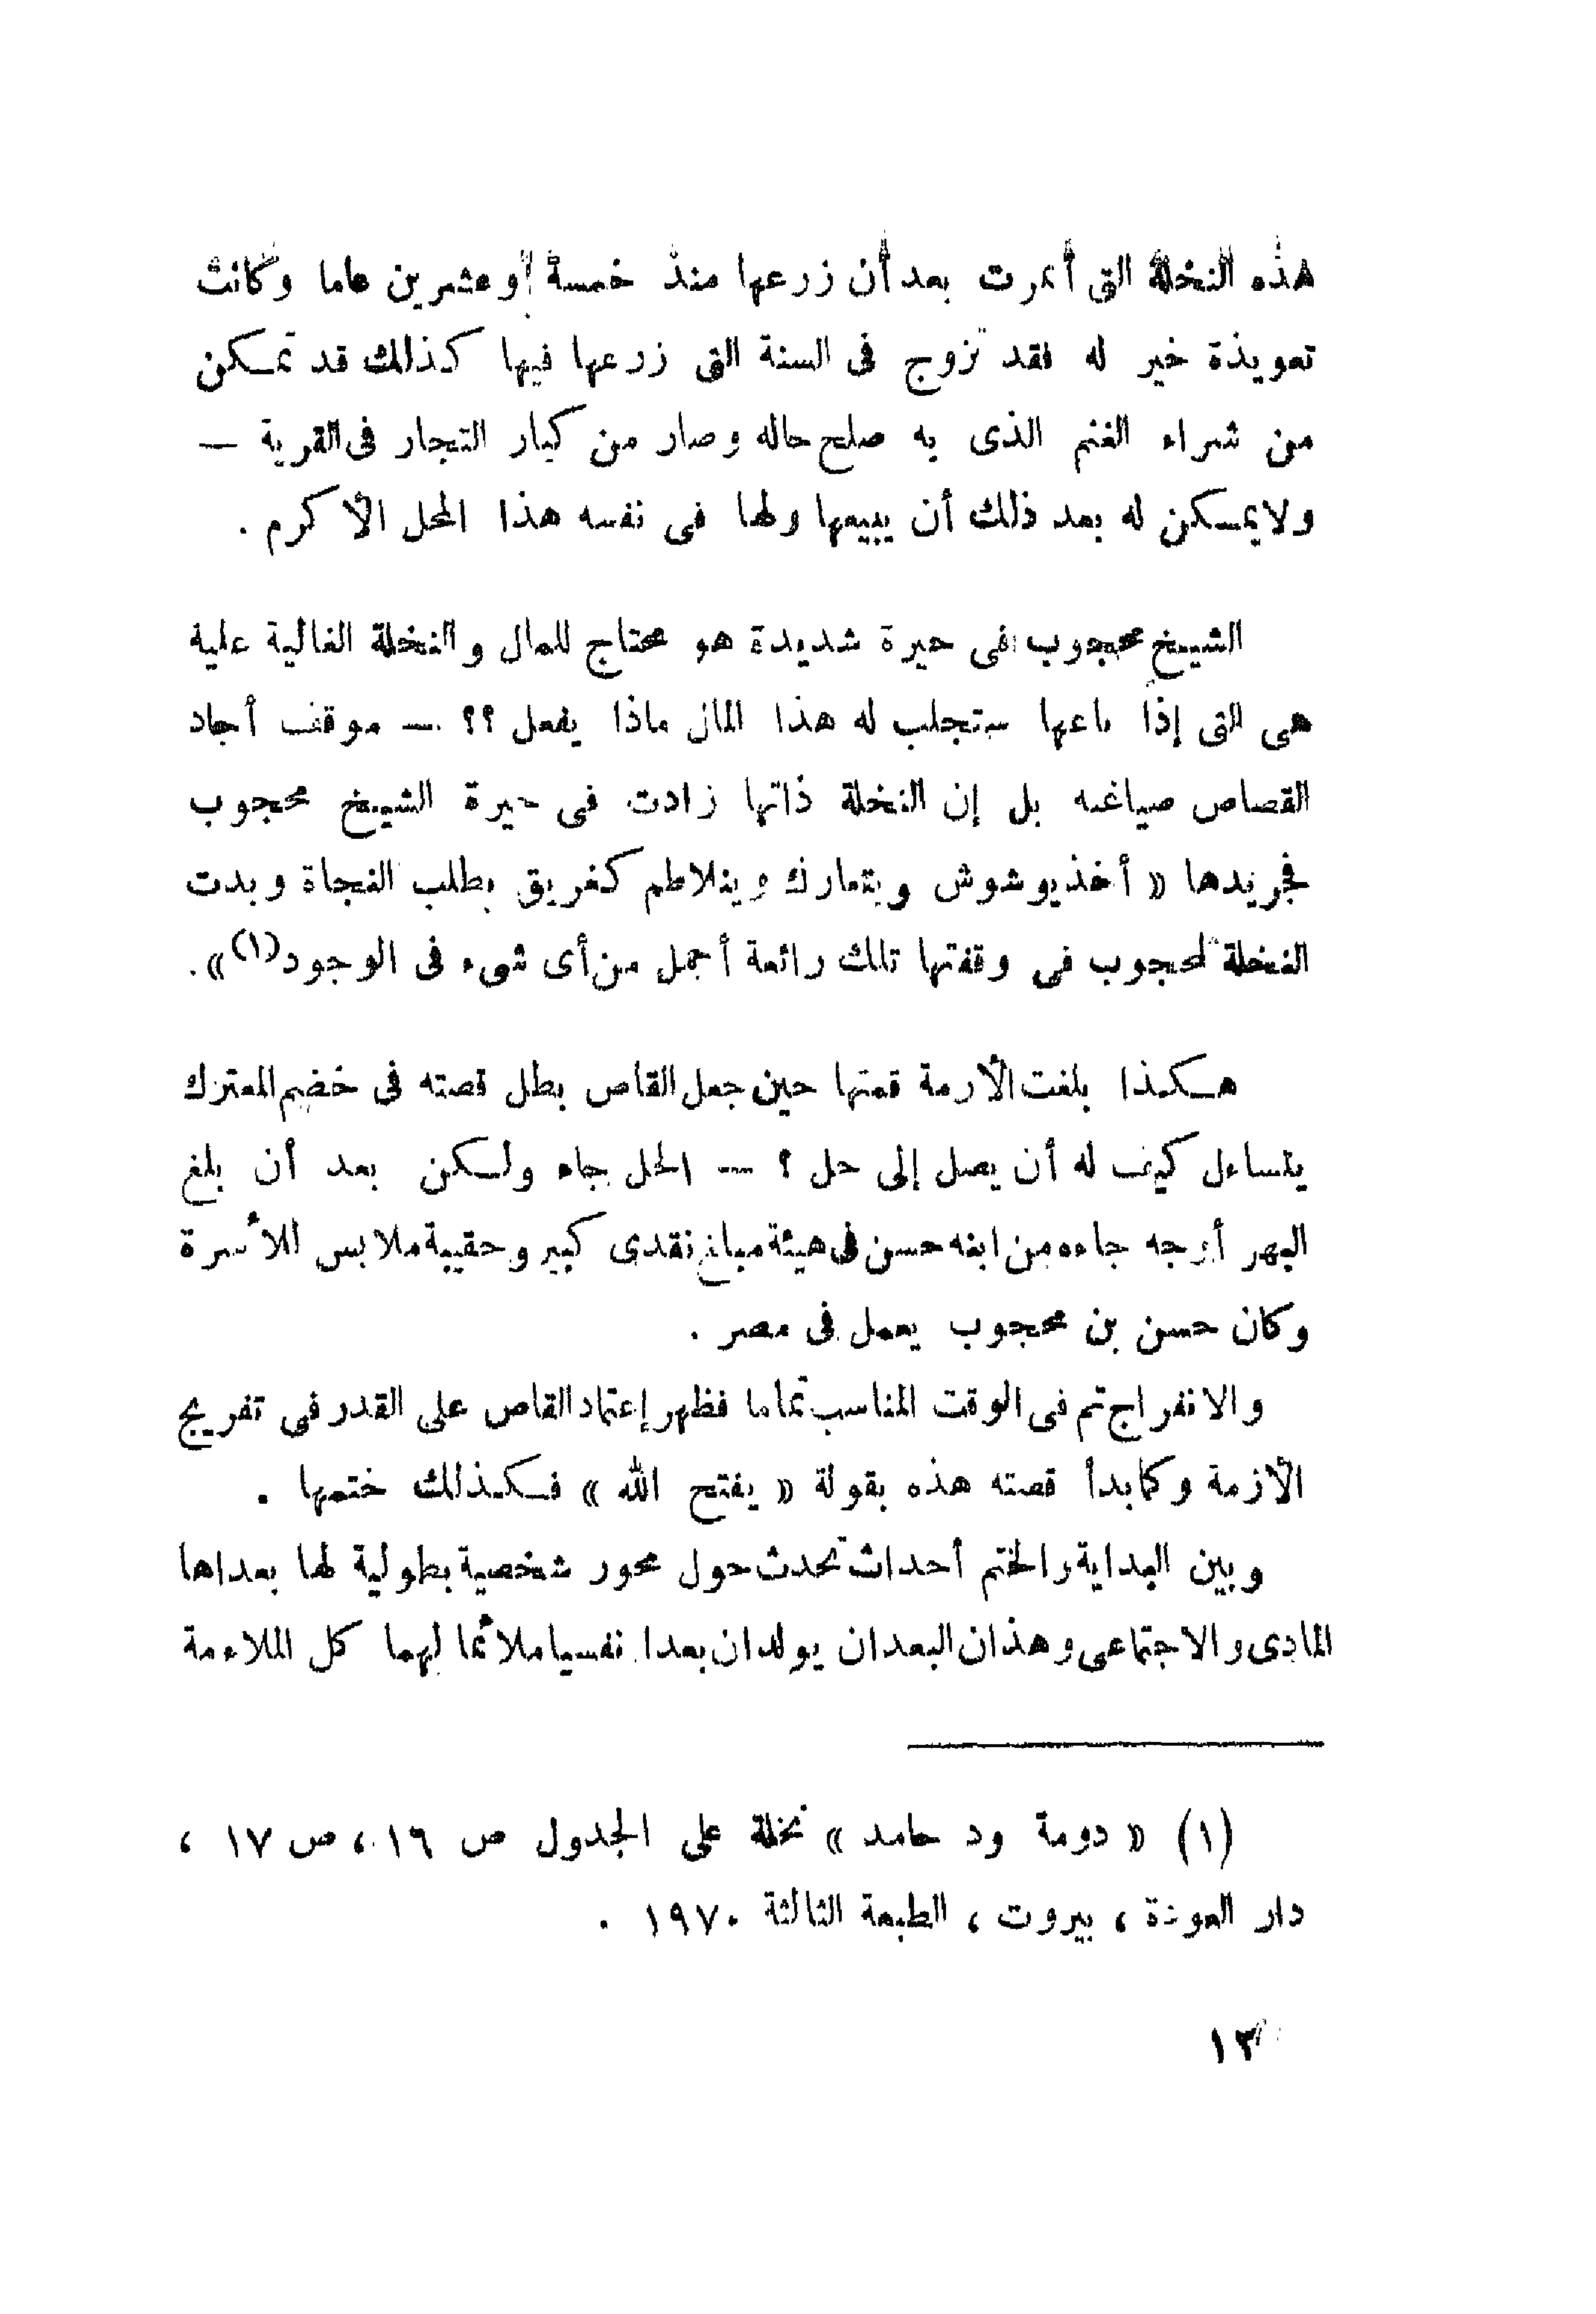 هذه النخلة التى أثمرت بعد أن زرعها منذ خمسة وعشرين عاما وكانت
تعويذة خير له فقد تزوج فى السنة التى زرعها فيها كذلك قد تمكن
من شراء الغنم الذى به صلح حاله وصار من كبار التجار فى القرية —
ولا يمكن له بعد ذلك أن يبيعها ولها فى نفسه هذا المحل الأكرم .
الشيخ محجوب فى حيرة شديدة هو محتاج للمال والنخلة الغالية علية
هى التى إذا باعها ستجلب له هذا المال ماذا يفعل ؟؟ — موقف أجاد
القصاص صياغته بل إن النخلة ذاتها زادت فى حيرة الشيخ محجوب
فجريدها « أخذ يوشوش ويتعارك ويتلاطم كغريق يطلب النجاة وبدت
النخلة لمحجوب فى وقفتها تلك رائعة أجمل من أى شىء فى الوجود(١) » .
هكذا بلغت الأزمة قمتها حين جعل القاص بطل قصته فى خضم المعترك
يتساءل كيف له أن يصل إلى حل ؟ — الحل جاء ولكن بعد أن بلغ
البهر أوجه جاءه من ابنه حسن فى هيئة مبلغ نقدى كبير وحقيبة ملابس للأسرة
وكان حسن بن محجوب يعمل فى مصر .
والانفراج تم فى الوقت المناسب تماما فظهر إعتماد القاص على القدر فى تفريج
الأزمة وكما بدأ قصته هذه بقولة « يفتح الله » فكذلك ختمها .
وبين البداية والختم أحداث تحدث حول محور شخصية بطولية لها بعداها
المادى والاجتماعى وهذان البعدان يولدان بعدا نفسيا ملائما لهما كل الملاءمة
(١) « دومة ود حامد » نخلة على الجدول ص ١٦ ، ص ١٧ ،
دار العودة ، بيروت ، الطبعة الثالثة ١٩٧٠ .
١٣